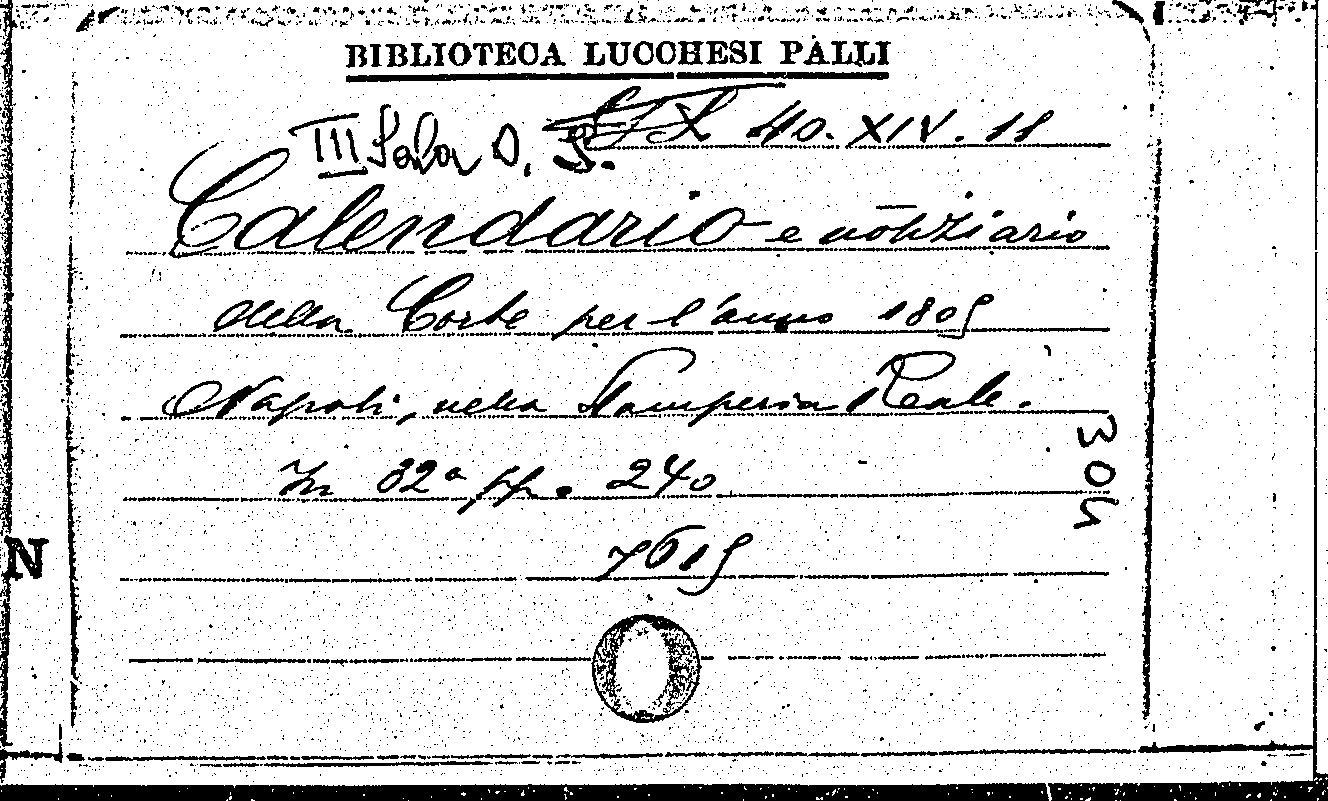 BIBLIOTECA LUCCHESI PALLI
40. XIV. 11
III Sala D. S.
Calendario e notiziario
della Corte per l'anno 1805
Napoli, nella Stamperia Reale.
In 32º pp. 240
304
7615
N